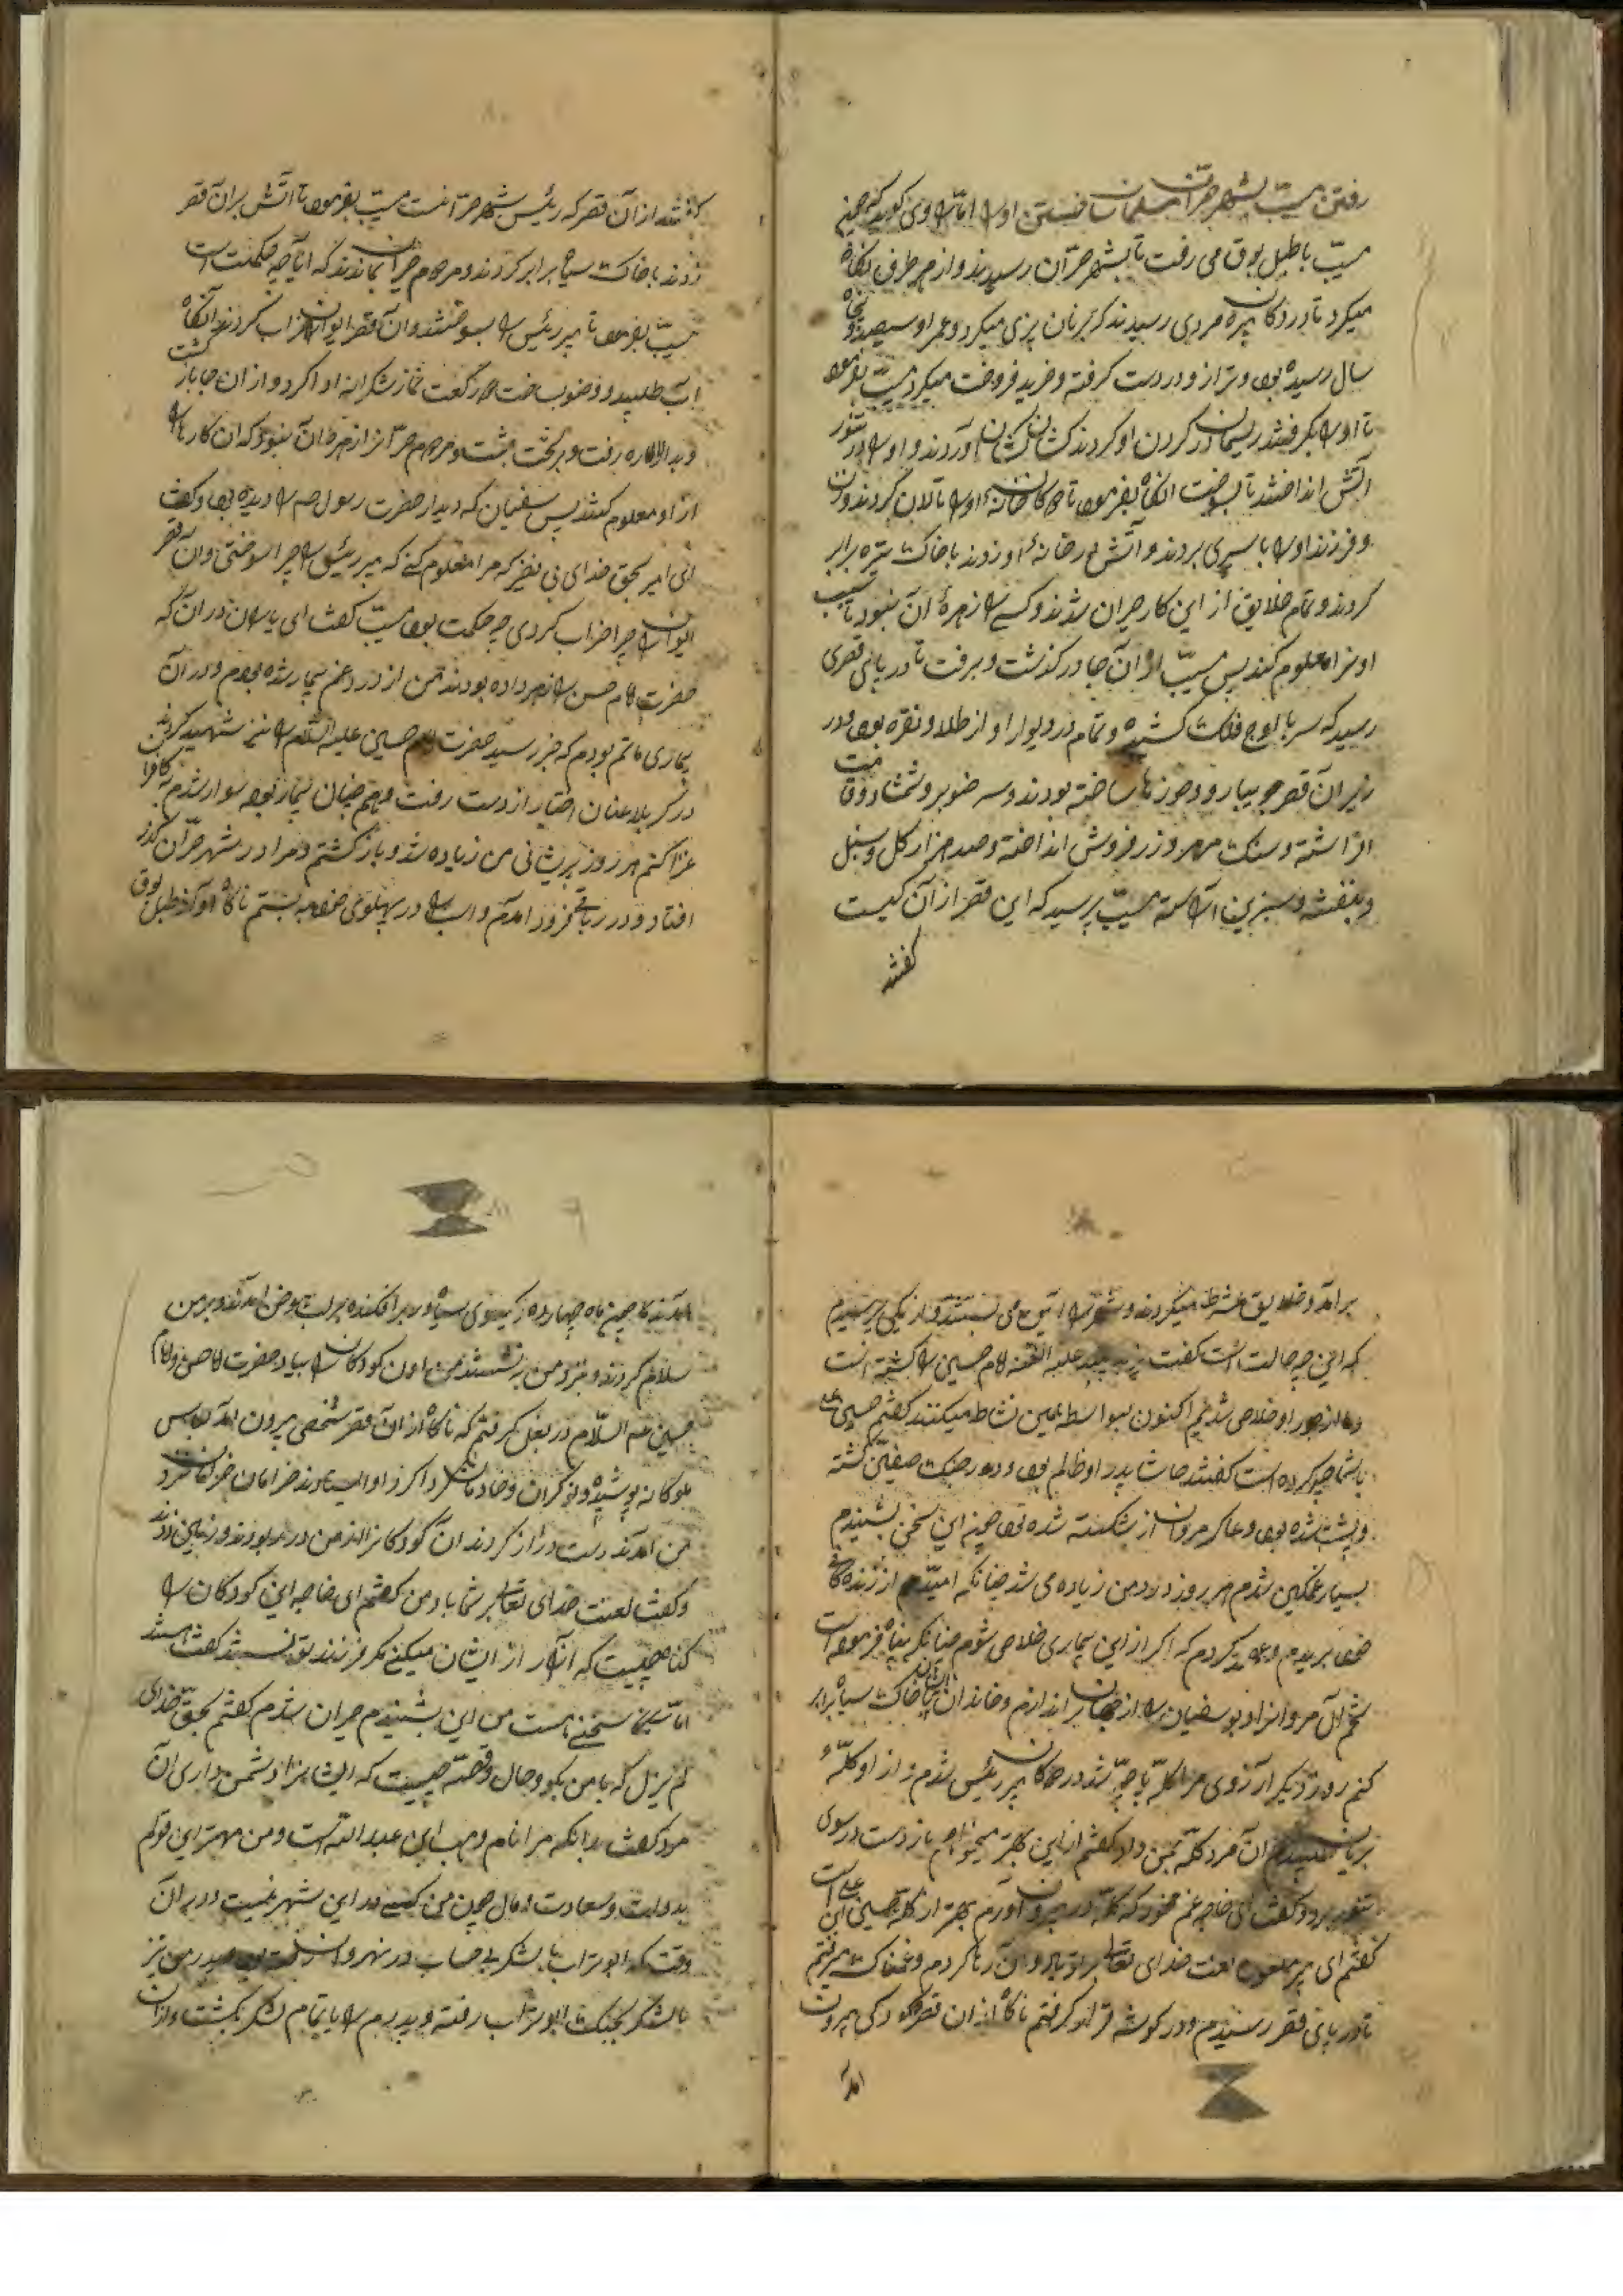 رفتن مسیب بشهر حران مسلمان ساختن اورا اما راوی گوید که چون
مسیب با طبل بوق می رفت تا بشهر حران رسیدند و از هر طرف نگاه
میکرد تا در دکان پیره مردی رسیدند که بریان پزی میکرد و عمر او سیصد و پنجاه
سال رسیده بود و ترازو در دست گرفته و خرید فروخت میکرد مسیب بفرمود
تا اورا بگرفتند ریسمان در گردن او کردند کشان کشان آوردند و اورا در تنور
آتش انداختند تا بسوخت انگاه بفرمود تا دکان خانه اورا تالان کردند وزن
و فرزند اورا باسیری بردند و آتش در خانهٔ او زدند با خاک تیره برابر
کردند و تمام خلایق از این کار حیران شدند و کسی را زهرهٔ آن نبود تا سبب
اونرا معلوم کند پس مسیب از آن جا در گذشت و برفت تا در پای قصری
رسید که سر باوج فلک کشیده و تمام در و دیوار او از طلا و نقره بود و در
زیر آن قصر جویبار و حوزها ساخته بودند و سر و صنوبر و شمشاد وقامت
افراشته و سنگ مرمر و زر فروش انداخته و صد هزار گل و سنبل
و بنفشه و سبزین آراسته مسیب پرسید که این قصر از آن کیست
گفتند
گفتند از آن قصر که رئیس شهر حرانست مسیب بفرمود تا آتش بران قصر
زدند با خاک سیاه برابر کردند و مردم حیران بماندند که ایا چه حکمتست
مسیب بفرمود تا پیر رئیس را بسوختند و آن قصر ایوانرا خراب کردند آنگاه
آب طلبید و وضو بساخت دو رکعت نماز شکرانه ادا کرد و از ان جا باز گشت
و بدار الاماره رفت و بر تخت نشست و مردم حران را زهرهٔ آن نبود که ان کارها را
از او معلوم کنند پس سفیان که دیدار حضرت رسول ص را دیده بود گفت
ای امیر بحق خدای بی نظیر که مرا معلوم کن که پیر رئیس را چرا سوختی و ان قصر
ایوانرا چرا خراب کردی چه حکمت بود مسیب گفت ای یاران در آن که
حضرت امام حسن را زهر داده بودند من از درد غم بیمار شده بودم و در آن
بیماری ماتم بودم که خبر رسید حضرت امام حسین علیه السلام را نیز شهید کردند
در کربلا عنان اختیار از دست رفت و همچنان بیمار بود سوار شدم
عزا کنم هر روز پریشانی من زیاده شد و باز گشتم و مرا در شهر حران گذر
افتاد و در رباطی فرود آمدم و اسب را در پهلوی خود به بستم ناگاه آواز طبل بوق
بر آمد و خلایق نشاط میکردند و شهر را آئین می بستند و از یکی پرسیدم
که این چه حالت است گفت یزید علیه اللعنه امام حسین را کشته است
و ما از جور او خلاص شدیم اکنون بواسطه همین نشاط میکنند گفتم حسین علی
باشما چه کرده است گفتند حاشا پدر او ظالم بود و در جنگ صفین کشته
و پشت شده بود و عساکر مروان از شکسته شده بود چون این سخن بشنیدم
بسیار غمگین شدم هر روز درد من زیاده می شد چنانکه امیدم از زنده گانی
خود بریدم و عهد کردم که اگر از این بیماری خلاص شوم چنانکه
تخم آل مروانرا و بوسفیان را از جهان براندازم و خاندان با خاک سیاه برابر
کنم روز دیگر آرزوی مرا کلّه پاچه شد در دکان پیر رئیس شدم و از او کلّهٔ
بریان طلبیدم ان مرد کلّه بمن داد گفتم از این بهتر میخواهم باز دست در سوی
تنور برد و گفت ای خواجه غم مخور که کلّه بیرون آورم بهتر از کلّه حسین ابن علی است
گفتم ای پیر ملعون لعنت خدای تعالی بر تو باد و آن رها کردم و غمناک میرفتم
تا در پای قصر رسیدم و در گوشه قرار گرفتم ناگاه از ان قصر کودکی بیرون
آمد
آمدند که چون ماه چهارده و گیسوی سیاه در بر افکنده بر لب حوض آمدند و بر من
سلام کردند و نزد من به نشستند من اون کودکان را بیاد حضرت امام حسن و امام
حسین علیه السلام در بغل گرفتم که ناگاه از ان قصر شخصی بیرون آمد لباس
ملوکانه پوشیده و نوکران و خادمان گرداگرد او ایستادند خرامان خرامان نزد
من آمدند دست دراز کردند آن کودکانرا از من در ربودند و بزمین زدند
و گفت لعنت خدای تعالی بر شما باد من گفتم ای خواجه این کودکان را
گناه چیست که آزار از ایشان میکنی مگر فرزند تو نیستند گفت هستند
اما سخنی هست من این بشنیدم حیران شدم گفتم بحق خدای
لم یزل که با من بگو و حال و قصه چیست که ایشانرا دشمن داری آن
مرد گفت بدانکه مرا نام وهب ابن عبد الله است و من مهتر این قوم
بدولت و سعادت و مال چون من کسی در این شهر نیست و در آن
وقت که ابوتراب با لشکر بی حساب در نهروان پدر من نیز
با لشکر بجنگ ابوتراب رفته و پدرم را با تمام لشکر بکشت و از ان